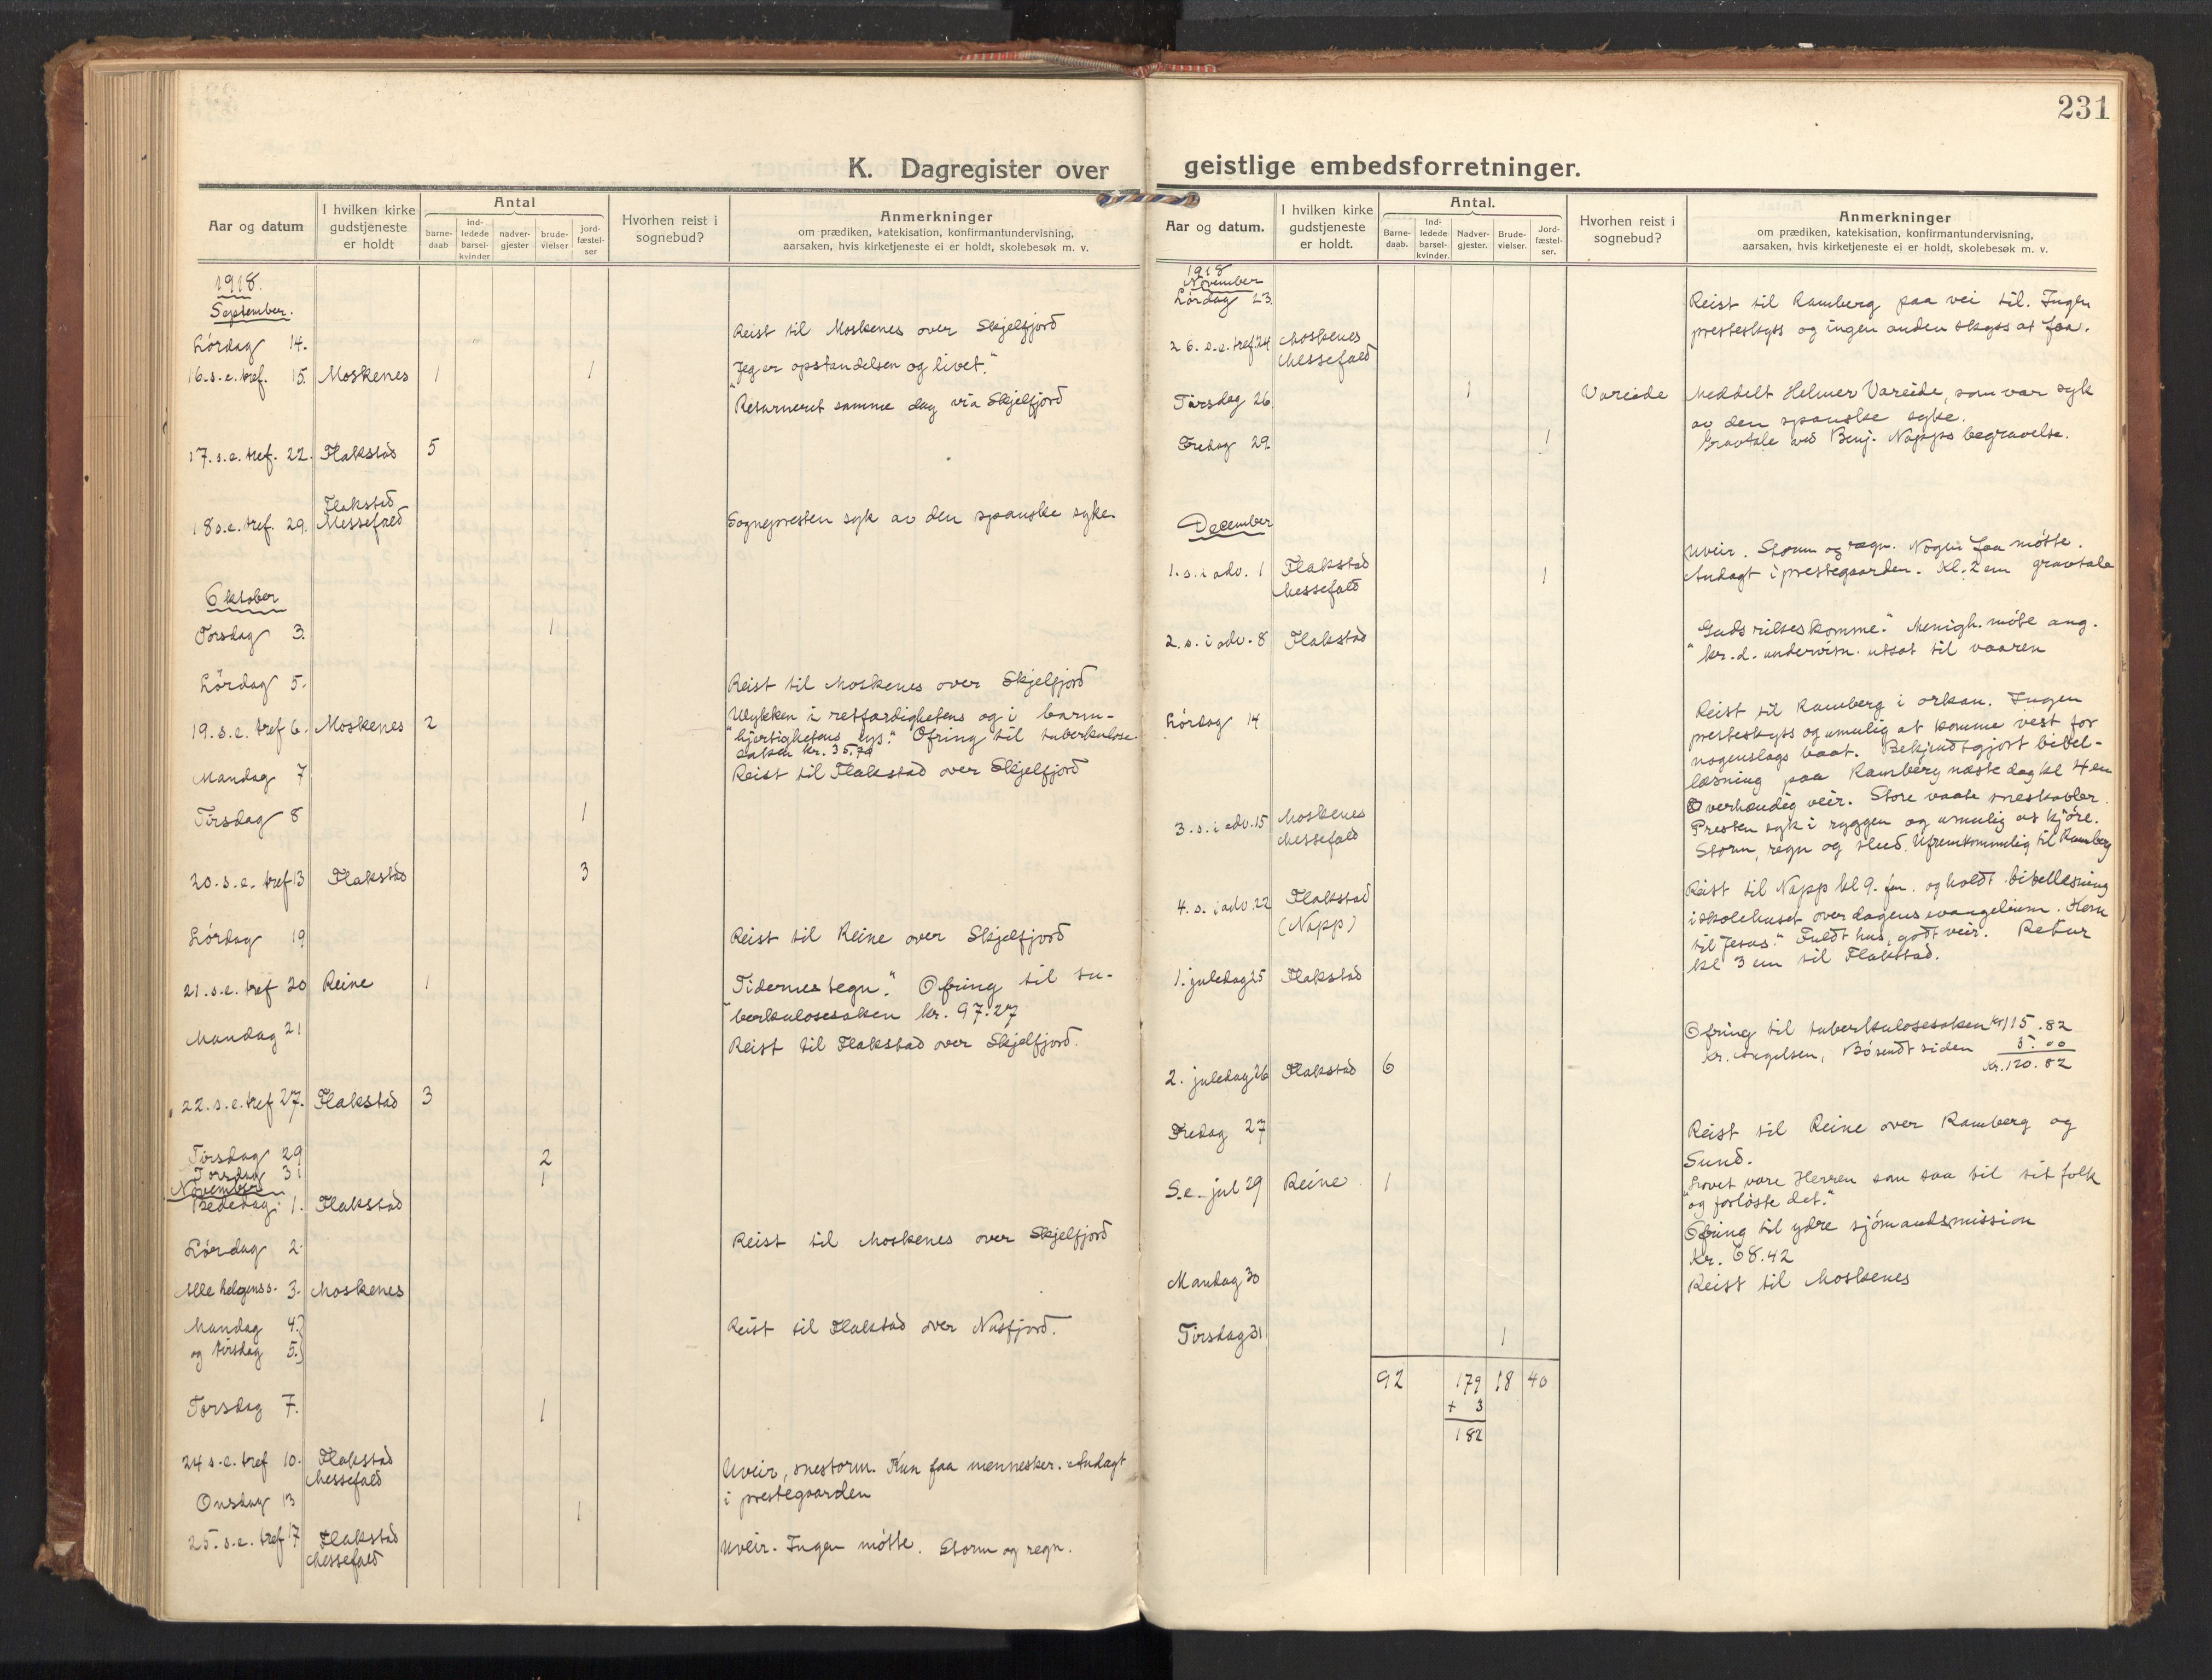 231
K. Dagregister over geistlige embedsforretninger.
Aar og datum
I hvilken kirke gudstjeneste er holdt
Antal
barne-daab
ind-ledede barsel-kvinder
nadver-gjester
brude-vielser
jord-fæstel-ser
Hvorhen reist i sognebud?
Anmerkninger
om prædiken, katekisation, konfirmantundervisning,
aarsaken, hvis kirketjeneste ei er holdt, skolebesøk m. v.
1918.
September.
Lördag 14. Reist til Moskenes over Skjelfjord
16. s. e. tref. 15. Moskenes 1 1 "Jeg er opstandelsen og livet."
Returneret samme dag via Skjelfjord
17. s. e. tref. 22. Flakstad 5
Flakstad
18 s. e. tref. 29. Messefald Sognepresten syk av den spanske syke.
Oktober
Torsdag 3. 1
Lördag 5. Reist til Moskenes over Skjelfjord
19. s. e. tref 6. Moskenes 2 "Ulykken i retfærdighetens og i barm-
hjertighetens lys." Ofring til tuberkulose-
saken kr. 35.70
Mandag 7 Reist til Flakstad over Skjelfjord
Tirsdag 8 1
20. s. e. tref 13 Flakstad 3
Lördag 19 Reist til Reine over Skjelfjord
21. s. e. tref 20 Reine 1 "Tidernes tegn." Ofring til tu-
berkulosesaken kr. 97.27
Mandag 21 Reist til Flakstad over Skjelfjord.
22. s. e. tref 27. Flakstad 3
Tirsdag 29 2
Torsdag 31 1
November
Bededag 1. Flakstad
Lördag 2. Reist til Moskenes over Skjelfjord
Alle helgenss. 3. Moskenes
Mandag 4.)
og tirsdag 5.) Reist til Flakstad over Nusfjord.
Torsdag 7. 1
24 s. e. tref 10. Flakstad
Messefald Uveir, snestorm. Kun faa mennesker. Andagt
i prestegaarden
Onsdag 13 1
25. s. e. tref 17 Flakstad
Messefald Uveir. Ingen mötte. Storm og regn.
Aar og datum.
I hvilken kirke gudstjeneste er holdt.
Antal.
Barne-daab.
Ind-ledede barsel-kvinder.
Nadver-gjester.
Brude-vielser.
Jord-fæstel-ser.
Hvorhen reist i sognebud?
Anmerkninger
om prædiken, katekisation, konfirmantundervisning,
aarsaken, hvis kirketjeneste ei er holdt, skolebesøk m. v.
1918
November
Lördag 23. Reist til Ramberg paa vei til. Ingen
presteskyss og ingen anden skyss at faa.
26. s. e. tref. 24 Moskenes
Messefald
Tirsdag 26. 1 Vareide Meddelt Helmer Vareide, som var syk
av den spanske syke.
Fredag 29. 1 Gravtale ved Benj. Napps begravelse.
December
1. s. i adv. 1 Flakstad
Messefald 1 Uveir. Storm og regn. Nogen faa mötte.
Andagt i prestegaarden. Kl. 2 em gravtale
2. s. i adv. 8 Flakstad "Guds rikes komme." Menigh. möte ang.
kr.d. undervisn. utsat til vaaren
Lördag 14 Reist til Ramberg i orkan. Ingen
presteskyss og umulig at komme vest for
nogenslags baat. Bekjendtgjort bibel-
læsning paa Ramberg næste dag kl 4 em
3. s. i adv. 15 Moskenes
Messefald Overhændig veir. Store vaate sneskavler.
Presten syk i ryggen og umulig at kjöre.
Storm, regn og slud. Ufremkommelig til Ramberg
4. s. i adv. 22 Flakstad
(Napp) Reist til Napp kl 9. fm. og holdt bibellesning
i skolehuset over dagens evangelium. Kom
til Jesus." Fuldt hus, godt veir. Retur
kl 3 em til Flakstad.
1. juledag 25 Flakstad
Ofring til tuberkulosesaken kr 115.82
Kr. Angelsen, Bö sendt siden 5.00
Kr. 120.82
2. juledag 26 Flakstad 6
Fredag 27 Reist til Reine over Ramberg og
Sund.
S. e. jul 29 Reine 1 "Lovet være Herren som saa til sit folk
og forlöste det."
Ofring til ydre sjömandsmission
kr. 68.42
Mandag 30 Reist til Moskenes
Tirsdag 31 1
92 179 18 40
+ 3
182